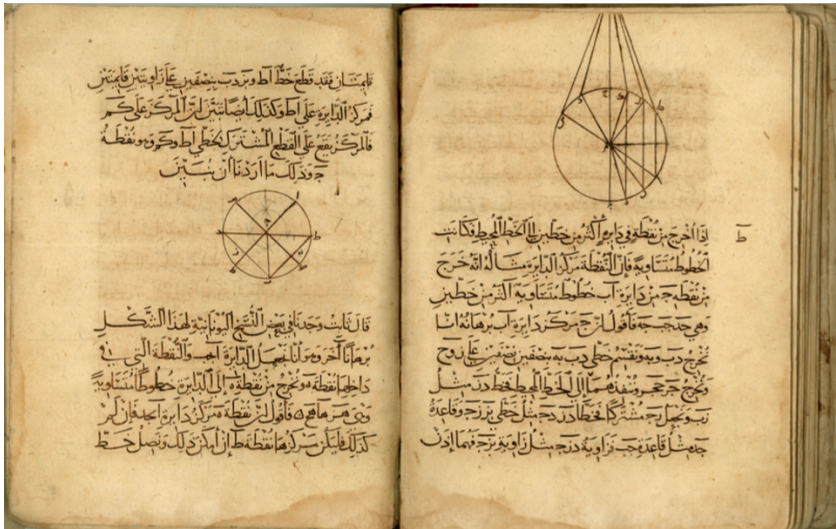 ط
إذا أخرج من نقطة في دايرة أكثر من خطين إلى الخط المحيط فكانت
الخطوط متساوية فإن النقطة مركز الدايرة مثاله أنه خرج
من نقطة ج من دايرة آب خطوط متساوية أكثر من خطين
وهي جد جب جه فأقول إن ج مركز دايرة آب برهانه انا
نخرج دب وبه ونقسم خطي دب به بنصفين نصفين على
ونخرج وننفذهما إلى الخط المحيط فخط دز مثل
زب ونجعل زج مشتركا فخطا دز زج مثل خطي بز زج وقاعدة
جد مثل قاعدة جب فزاوية دزج مثل زاوية بزج فهما إذن
قايمتان فقد قطع خط اط وتر دب بنصفين على زاويتين قايمتين
فمركز الدايرة على اط وكذلك أيضا نبين أن المركز على كم
فالمركز يقع على القطع المشترك لخطي اط وكم وهو نقطة
ج وذلك ما أردنا أن نبين
قال ثابت وجدنا في بعض النسخ اليونانية لهذا الشكل
برهانا آخر وهو انا نجعل الدايرة والنقطة التي في
داخلها نقطة ه ونخرج من نقطة ه إلى الدايرة خطوطا متساوية
وهي فأقول إن نقطة ه مركز دايرة فإن لم
كذلك فليكن مركزها نقطة ط إن أمكن ذلك ونصل خط